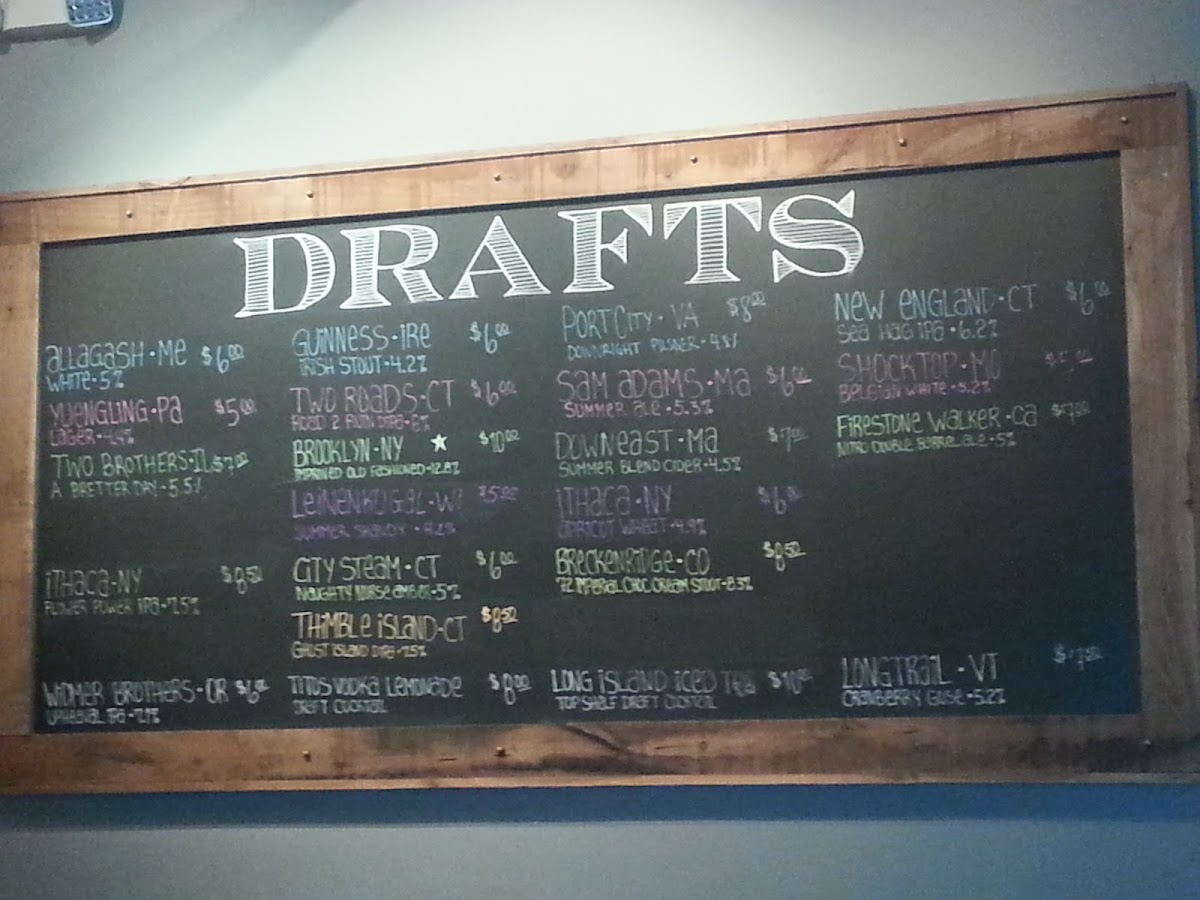 DRAFTS
ALLAGASH·ME $6.00
WHITE·5%
YUENGLING·PA $5.00
LAGER·4.4%
TWO BROTHERS·IL $7.00
A BRETTER DAY·5.5%
ITHACA·NY $8.50
FLOWER POWER IPA·7.5%
WIDMER BROTHERS·OR $6.00
UPHEAVAL IPA·7.1%
GUINNESS·IRE $6.00
IRISH STOUT·4.2%
TWO ROADS·CT $6.00
ROAD 2 RUIN DIPA·8%
BROOKLYN·NY $10.00
IMPROVED OLD FASHIONED·12.8%
LEINENKUGAL·WI $5.00
SUMMER SHANDY·4.2%
CITY STEAM·CT $6.00
NAUGHTY NURSE AMBER·5%
THIMBLE ISLAND·CT $8.50
GHOST ISLAND DIPA·7.5%
TITOS VODKA LEMONADE $8.00
DRAFT COCKTAIL
PORT CITY·VA $8.00
DOWNRIGHT PILSNER·4.8%
SAM ADAMS·MA $6.00
SUMMER ALE·5.3%
DOWNEAST·MA $7.00
SUMMER BLEND CIDER·4.5%
ITHACA·NY $6.00
APRICOT WHEAT·4.9%
BRECKENRIDGE·CO $8.50
72 IMPERIAL CHOC CREAM STOUT·8.3%
LONG ISLAND ICED TEA $10.00
TOP SHELF DRAFT COCKTAIL
NEW ENGLAND·CT $6.00
SEA HAG IPA·6.2%
SHOCKTOP·MO $5.00
BELGIAN WHITE·5.2%
FIRESTONE WALKER·CA $7.00
NITRO DOUBLE BARREL ALE·5%
LONGTRAIL·VT
CRANBERRY GOSE·5.2%